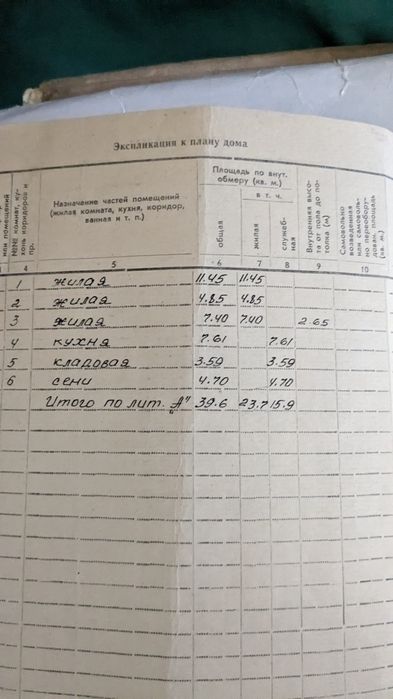 Экспликация к плану дома
или помещений
№№ комнат, ку-
хонь коридоров и
пр.
Назначение частей помещений
(жилая комната, кухня, коридор,
ванная и т. п.)
Площадь по внут.
обмеру (кв. м.)
общая
в т. ч.
жилая
служеб-
ная
Внутренняя высо-
та от пола до по-
толка (м)
Самовольно
возведенная
или самоволь-
но переобору-
дован. площадь
(кв. м.)
3 4 5 6 7 8 9 10
1 жилая 11.45 11.45
2 жилая 4.85 4.85
3 жилая 7.40 7.40 2.65
4 кухня 7.61 7.61
5 кладовая 3.59 3.59
6 сени 4.70 4.70
Итого по лит. „А" 39.6 23.7 15.9